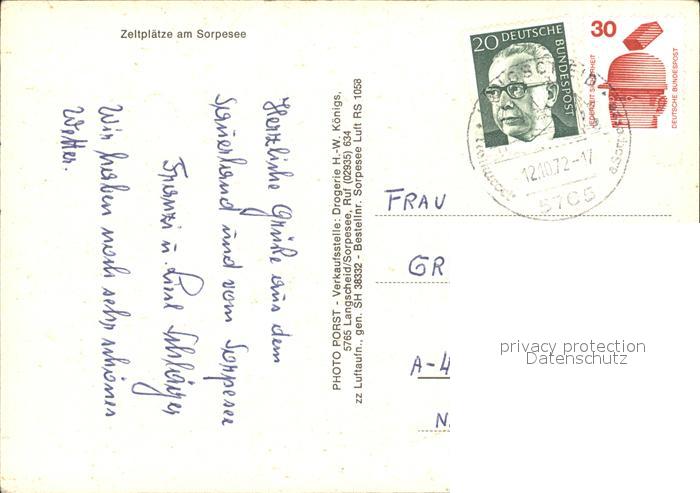 Zeltplätze am Sorpesee
Herzliche Grüße aus dem
Sauerland und vom Sorpesee
Franzi u. Liesl
Wir haben noch sehr schönes
Wetter.
PHOTO PORST - Verkaufsstelle: Drogerie H.-W. Königs,
5765 Langscheid/Sorpesee, Ruf (02935) 634
zz Luftaufn., gen. SH 38332 - Bestellnr. Sorpesee Luft RS 1058
20 DEUTSCHE BUNDESPOST
30
JEDERZEIT SICHERHEIT
DEUTSCHE BUNDESPOST
12.10.72-17
5765
FRAU
GR
A-4
N.
privacy protection
Datenschutz